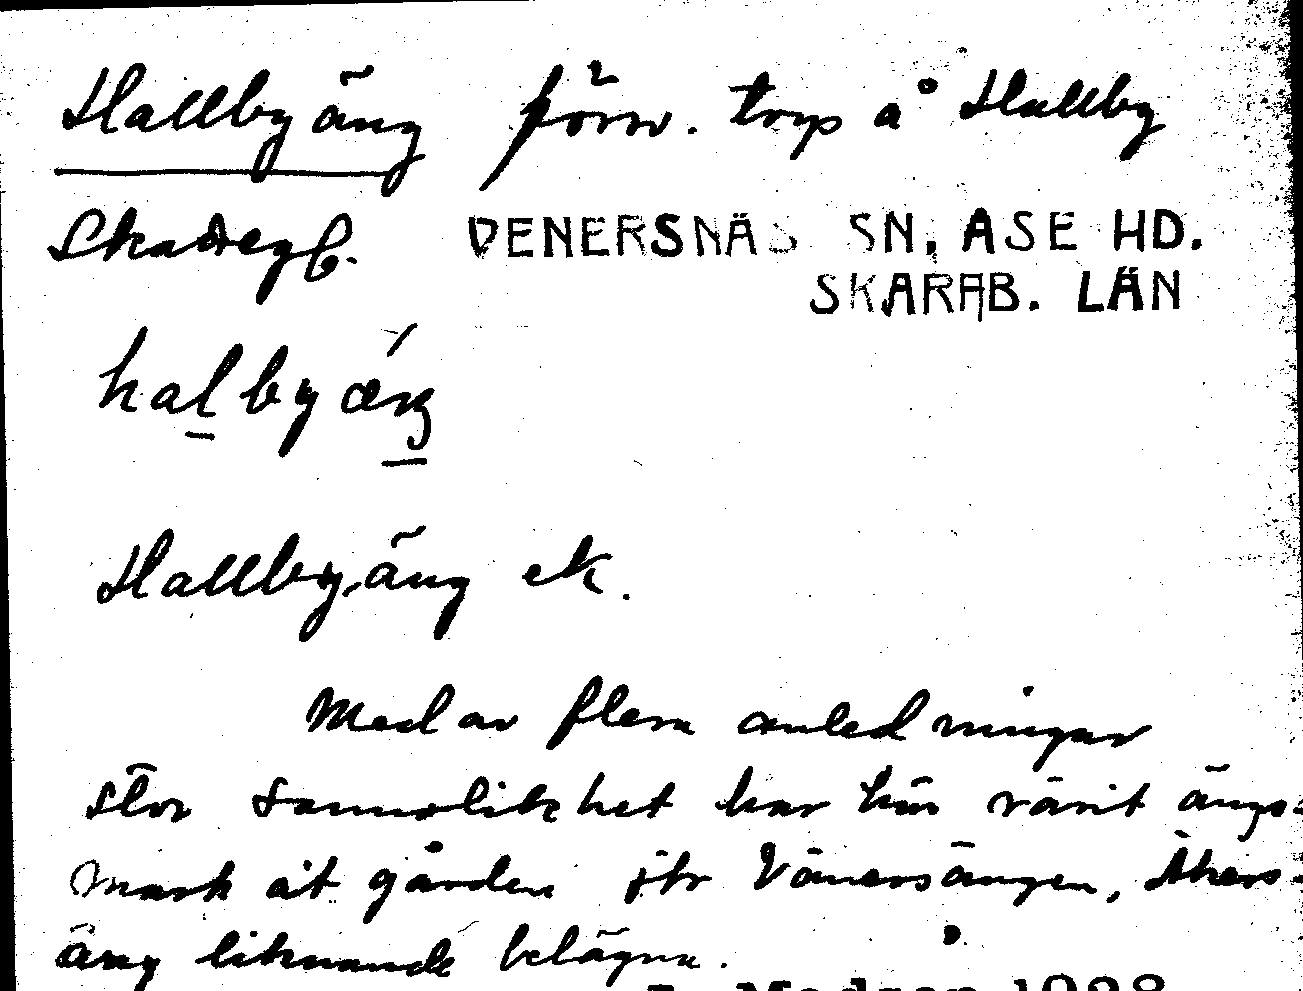 Hallbyäng förv. torp å Hallby
Skadegb. VENERSNÄS SN, ÅSE HD.
SKARAB. LÄN
halbyǽŋ
Hallbyäng ek.
Med av flera anledningar
stor sannolikhet har här varit ängs-
mark åt gården jfr Vänersängen, Åkers-
äng liknande belägna.